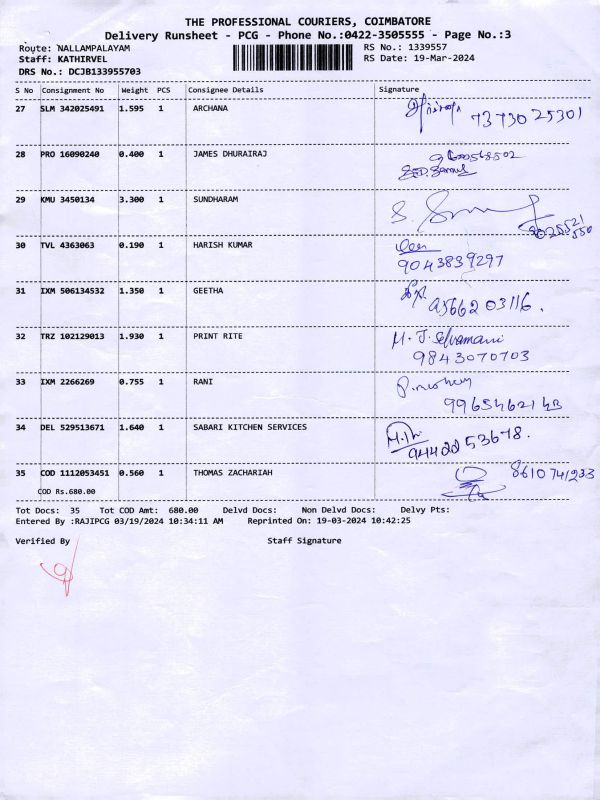 THE PROFESSIONAL COURIERS, COIMBATORE
Delivery Runsheet - PCG - Phone No.:0422-3505555 - Page No.:3
Route: NALLAMPALAYAM RS No.: 1339557
Staff: KATHIRVEL RS Date: 19-Mar-2024
DRS No.: DCJB133955703
S No Consignment No Weight PCS Consignee Details Signature
27 SLM 342025491 1.595 1 ARCHANA 7373025301
28 PRO 16090240 0.400 1 JAMES DHURAIRAJ
29 KMU 3450134 3.300 1 SUNDHARAM
30 TVL 4363063 0.190 1 HARISH KUMAR
9043839297
31 IXM 506134532 1.350 1 GEETHA 9566203116.
32 TRZ 102129013 1.930 1 PRINT RITE M. J. Selvamani
9843070703
33 IXM 2266269 0.755 1 RANI
34 DEL 529513671 1.640 1 SABARI KITCHEN SERVICES
9442253678.
35 COD 1112053451 0.560 1 THOMAS ZACHARIAH 8610741233
COD Rs.680.00
Tot Docs: 35 Tot COD Amt: 680.00 Delvd Docs: Non Delvd Docs: Delvy Pts:
Entered By :RAJIPCG 03/19/2024 10:34:11 AM Reprinted On: 19-03-2024 10:42:25
Verified By Staff Signature